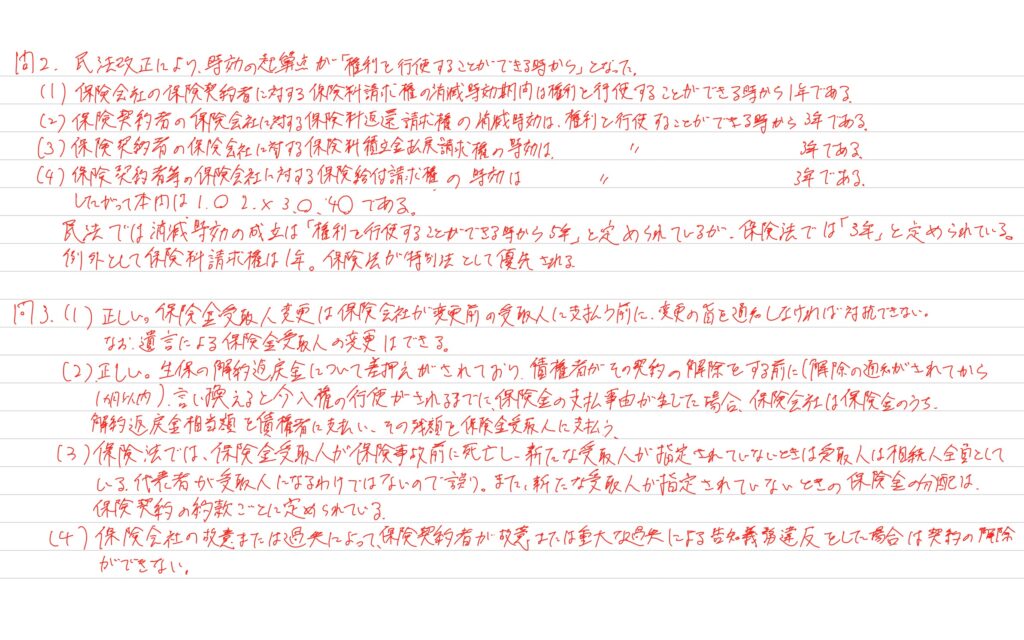 問2. 民法改正により、時効の起算点が「権利を行使することができる時から」となった。
(1) 保険会社の保険契約者に対する保険料請求権の消滅時効期間は権利を行使することができる時から1年である。
(2) 保険契約者の保険会社に対する保険料返還請求権の消滅時効は、権利を行使することができる時から3年である。
(3) 保険契約者の保険会社に対する保険料積立金払戻請求権の時効は 〃 3年である。
(4) 保険契約者等の保険会社に対する保険給付請求権の時効は 〃 3年である。
したがって本問は 1.○ 2.× 3.○. 4.○ である。
民法では消滅時効の成立は「権利を行使することができる時から5年」と定められているが、保険法では「3年」と定められている。
例外として保険料請求権は1年。保険法が特別法として優先される
問3. (1) 正しい。保険金受取人変更は保険会社が変更前の受取人に支払う前に、変更の旨を通知しなければ対抗できない。
なお、遺言による保険金受取人の変更はできる。
(2) 正しい。生保の解約返戻金について差押えがされており、債権者がその契約の解除をする前に(解除の通知がされてから
1ヵ月以内)、言い換えると介入権の行使がされるまでに、保険金の支払事由が生じた場合、保険会社は保険金のうち、
解約返戻金相当額を債権者に支払い、その残額を保険金受取人に支払う。
(3) 保険法では、保険金受取人が保険事故前に死亡し、新たな受取人が指定されていないときは受取人は相続人全員として
いる。代表者が受取人になるわけではないので誤り。また、新たな受取人が指定されていないときの保険金の分配は、
保険契約の約款ごとに定められている。
(4) 保険会社の故意または過失によって、保険契約者が故意または重大な過失による告知義務違反をした場合は契約の解除
ができない。